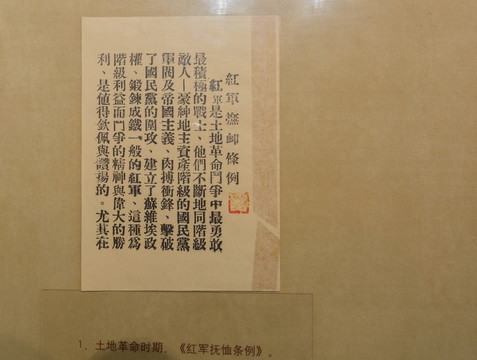 紅軍撫卹條例
紅軍是土地革命鬥爭中最勇敢
最積極的戰士、他們不斷地同階級
敵人—豪紳地主資產階級的國民黨
軍閥及帝國主義、肉搏衝鋒、擊破
了國民黨的圍攻、建立了蘇維埃政
權、鍛鍊成鐵一般的紅軍、這種為
階級利益而鬥爭的精神與偉大的勝
利、是值得欽佩與讚揚的。尤其在
1、土地革命时期，《红军抚恤条例》。